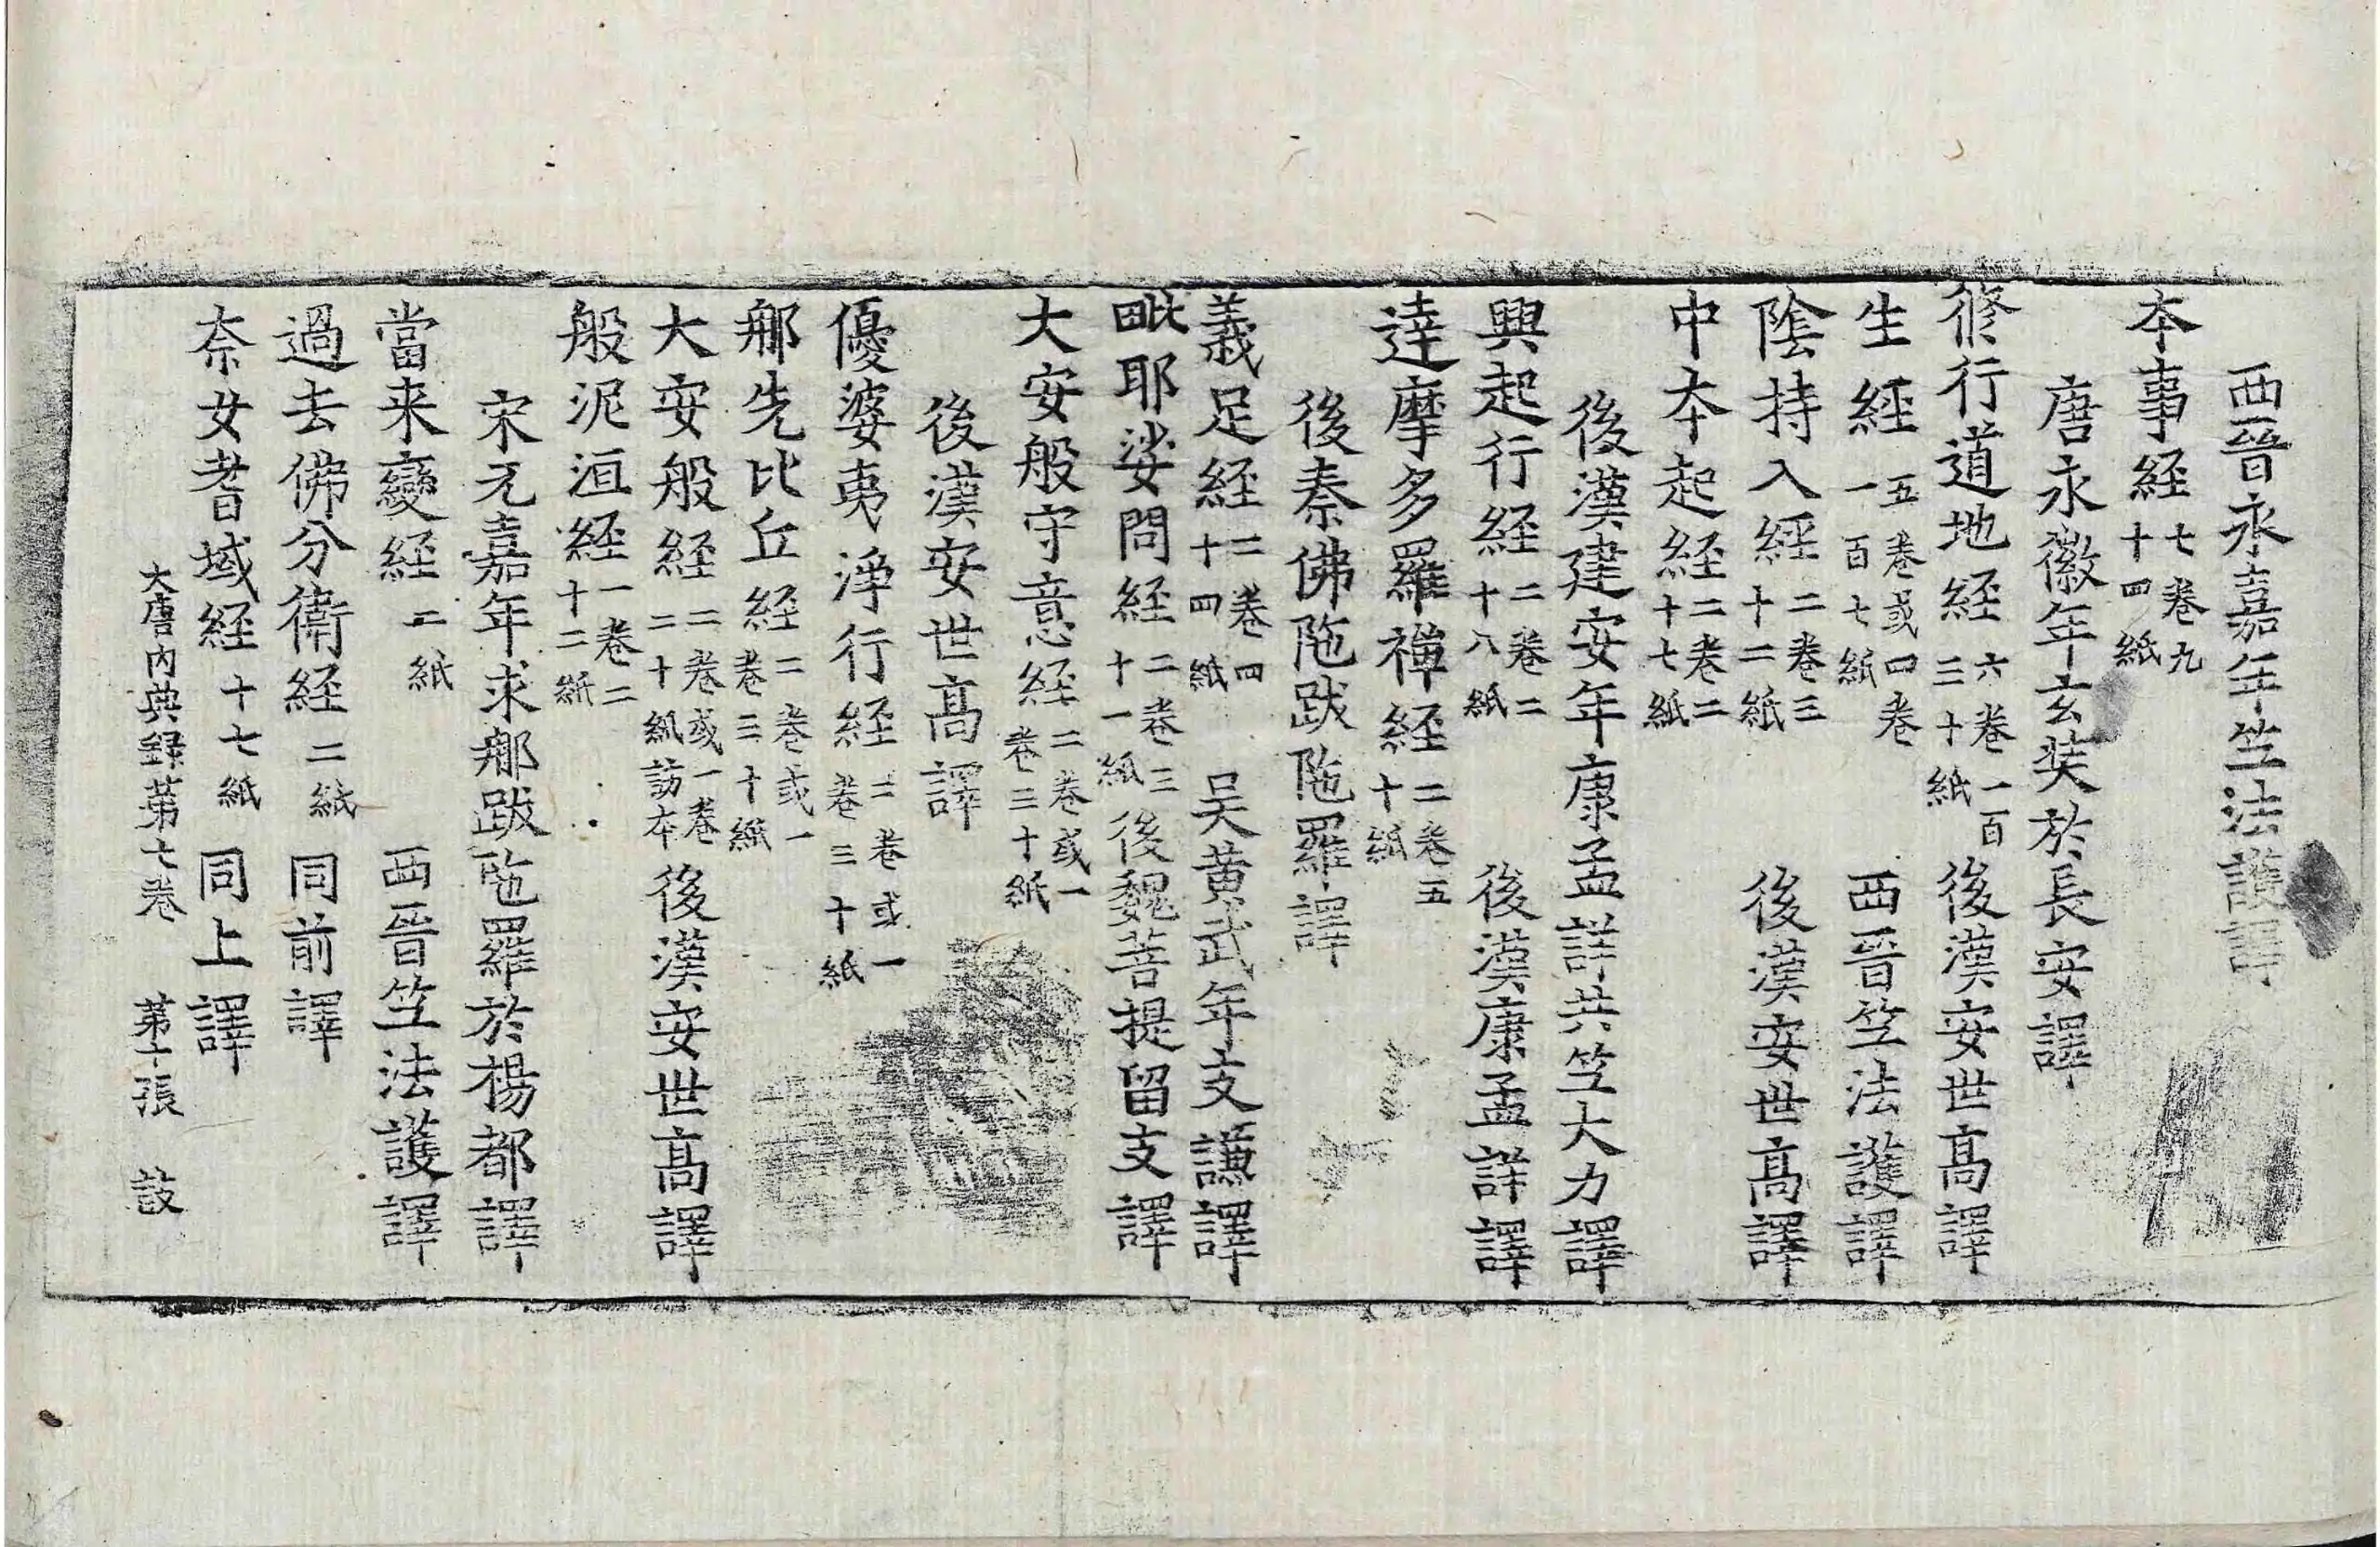 西晉永嘉年竺法護譯
本事経七卷九十四紙
唐永徽年玄奘於長安譯
修行道地経六卷一百三十紙後漢安世高譯
生経五卷或四卷一百七紙西晉竺法護譯
陰持入経二卷三十二紙後漢安世高譯
中本起経二卷二十七紙
後漢建安年康孟詳共竺大力譯
興起行経二卷二十八紙後漢康孟詳譯
達摩多羅禪経二卷五十紙
後秦佛陁跋陁羅譯
義足経二卷四十四紙吴黄武年支謙譯
毗耶娑問経二卷三十一紙後魏菩提留支譯
大安般守意経二卷或一卷三十紙
後漢安世高譯
優婆夷淨行経二卷或一卷三十紙
那先比丘経二卷或一卷三十紙
大安般経二卷或一卷二十紙訪本後漢安世高譯
般泥洹経一卷二十二紙
宋元嘉年求那跋陁羅於楊都譯
當来變経二紙西晉竺法護譯
過去佛分衛経二紙同前譯
柰女耆域経十七紙同上譯
大唐内典録第七卷第十張設